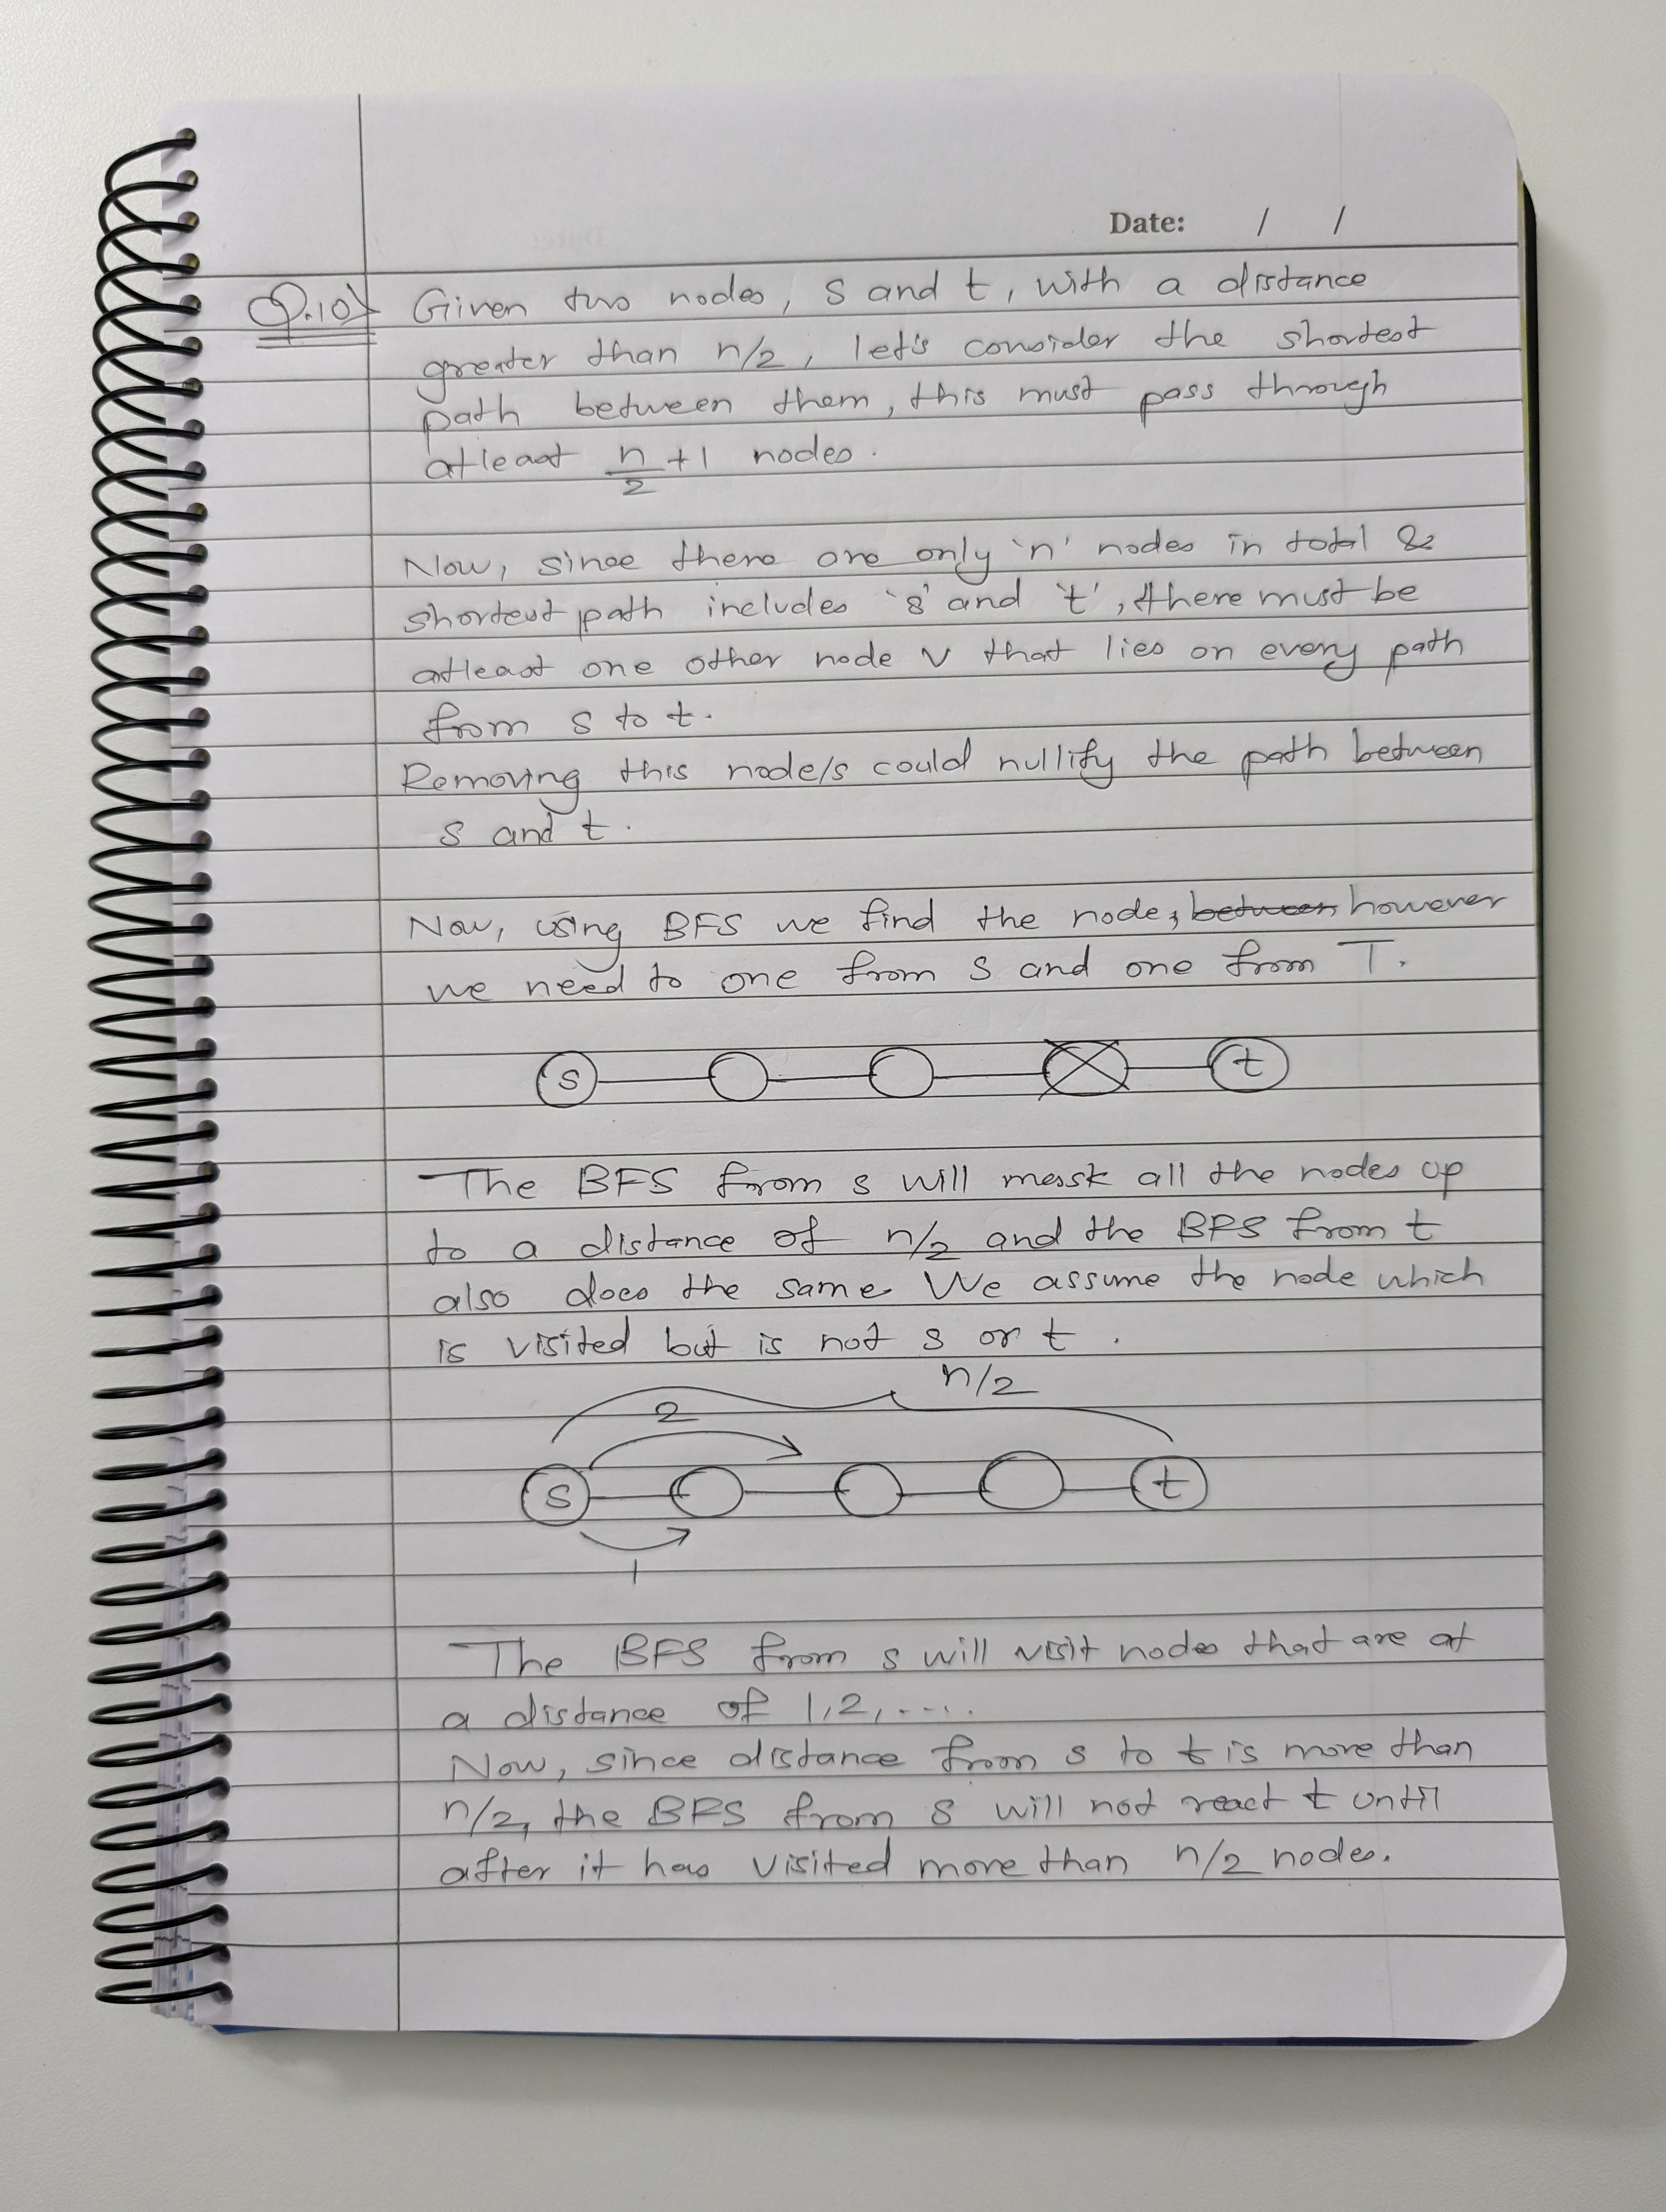 Date: / /
Q.10) Given two nodes, s and t, with a distance
greater than n/2, let's consider the shortest
path between them, this must pass through
atleast n/2 +1 nodes.
Now, since there are only 'n' nodes in total &
shortest path includes 's' and 't', there must be
atleast one other node v that lies on every path
from s to t.
Removing this node/s could nullify the path between
s and t.
Now, using BFS we find the node, between however
we need to one from s and one from T.
s t
The BFS from s will mask all the nodes up
to a distance of n/2 and the BFS from t
also does the same. We assume the node which
is visited but is not s or t.
n/2
2
s t
1
The BFS from s will visit nodes that are at
a distance of 1,2,....
Now, since distance from s to t is more than
n/2, the BFS from s will not react t until
after it has visited more than n/2 nodes.